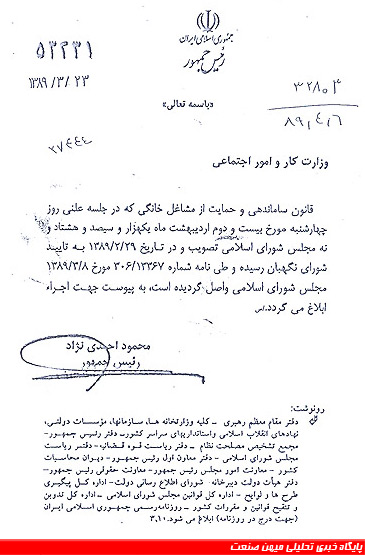 جمهوری اسلامی ایران
رئیس جمهور
۵۳۳۳۱
۱۳۸۹/۳/۲۳
«باسمه تعالی»
۳۲۸۰۳
۸۹/۴/۶
۲۷۴۴۴
وزارت کار و امور اجتماعی
قانون ساماندهی و حمایت از مشاغل خانگی که در جلسه علنی روز
چهارشنبه مورخ بیست و دوم اردیبهشت ماه یکهزار و سیصد و هشتاد و
نه مجلس شورای اسلامی تصویب و در تاریخ ۱۳۸۹/۲/۲۹ به تایید
شورای نگهبان رسیده و طی نامه شماره ۳۰۶/۱۳۳۶۷ مورخ ۱۳۸۹/۳/۸
مجلس شورای اسلامی واصل گردیده است، به پیوست جهت اجراء
ابلاغ می گردد.
محمود احمدی نژاد
رئیس جمهور
رونوشت:
دفتر مقام معظم رهبری - کلیه وزارتخانه ها، سازمانها، مؤسسات دولتی،
نهادهای انقلاب اسلامی واستانداریهای سراسر کشور- دفتر رئیس جمهور-
مجمع تشخیص مصلحت نظام - دفتر ریاست قوه قضائیه - دفتر ریاست
مجلس شورای اسلامی - دفتر معاون اول رئیس جمهور - دیوان محاسبات
کشور - معاونت امور مجلس رئیس جمهور - معاونت حقوقی رئیس جمهور-
دفتر هیأت دولت دبیرخانه شورای اطلاع رسانی دولت - اداره کل پیگیری
طرح ها و لوایح - اداره کل قوانین مجلس شورای اسلامی - اداره کل تدوین
و تنقیح قوانین و مقررات کشور - روزنامه رسمی جمهوری اسلامی ایران
(جهت درج در روزنامه) ابلاغ می شود.
پایگاه خبری تحلیلی میهن صنعت